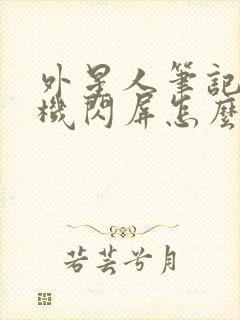 外星人筆記
機閃屏怎麼
若芸兮月